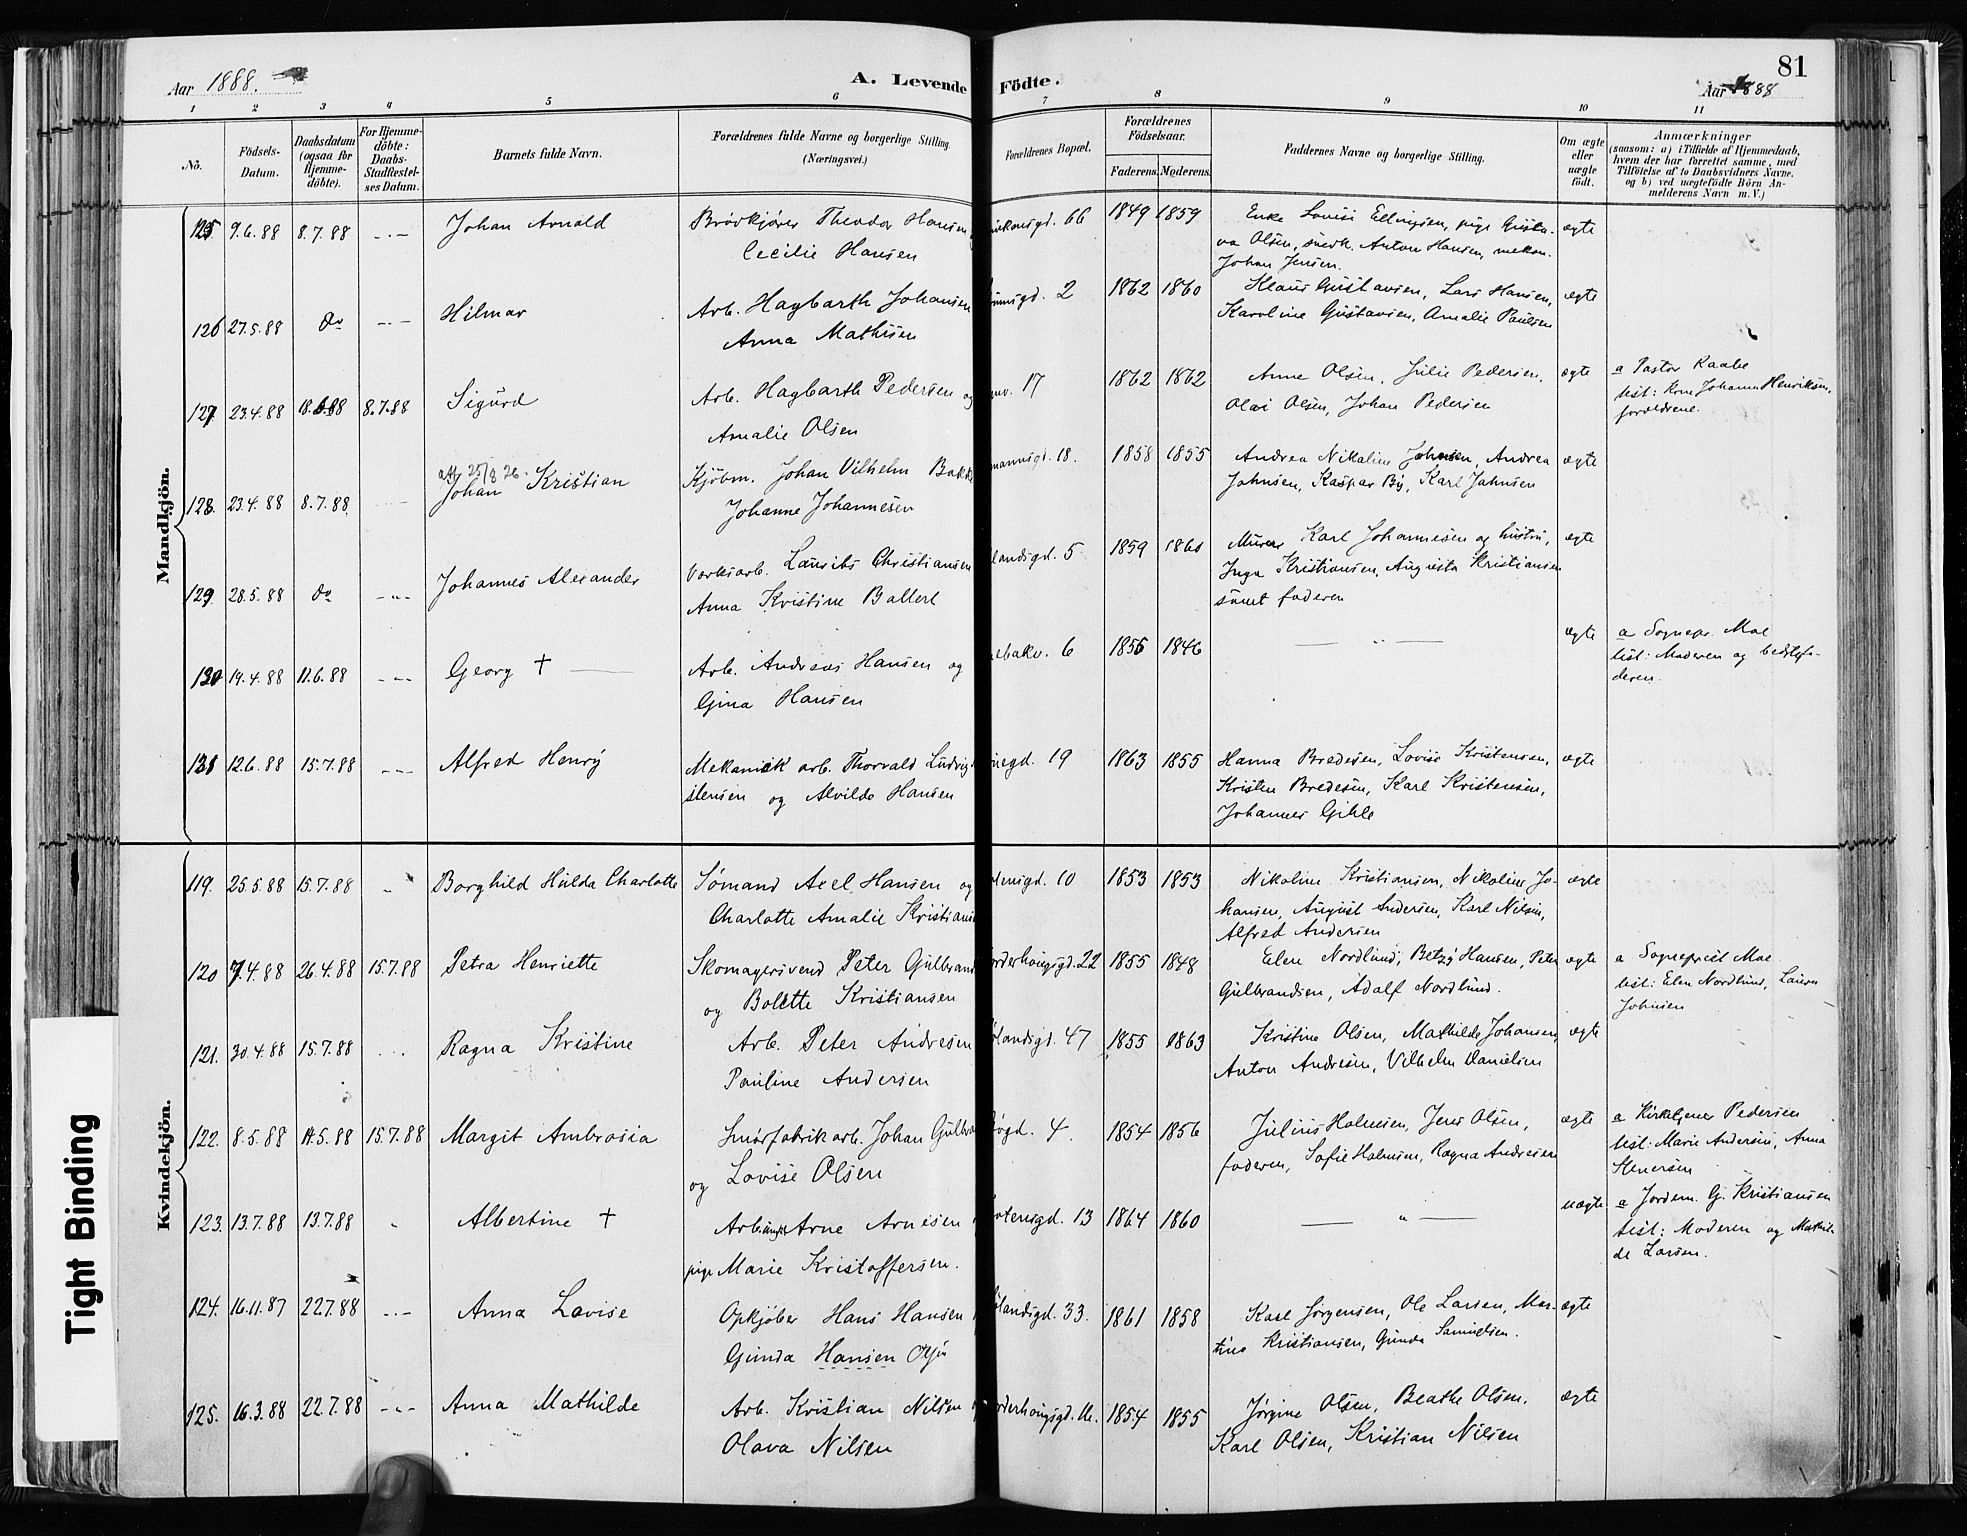 Aar 1888.
A. Levende Födte.
Aar 1888
81
1 2 3 4 5 6 7 8 9 10 11
No.
Födsels-
Datum.
Daabsdatum
(ogsaa for
Hjemme-
döbte).
For Hjemme-
döbte:
Daabs-
Stadfæstel-
ses Datum.
Barnets fulde Navn.
Forældrenes fulde Navne og borgerlige Stilling.
(Næringsvei.)
Forældrenes Bopæl.
Forældrenes
Födselsaar.
Faderens. Moderens.
Faddernes Navne og borgerlige Stilling.
Om ægte
eller
uægte
födt.
Anmærkninger
(saasom: a) i Tilfælde af Hjemmedaab,
hvem der har forrettet samme, med
Tilföielse af to Daabsvidners Navne,
og b) ved uægtefödte Börn An-
melderens Navn m. V.)
Mandkjön.
125. 9.6.88 8.7.88 -..- Johan Arnold
Brödkjörer Theodor Hansen
Cecilie Hansen
66 1849 1859
Enke Lovise Ellingsen, pige Gusta-
va Olsen, snedk. Anton Hansen, mekan.
Johan Jensen.
ægte
126 27.5.88 do -..- Hilmar
Arb. Hagbarth Johansen
Anna Mathisen
2 1862 1860
Klaus Gustavsen, Lars Hansen,
Karoline Gustavsen, Amalie Paulsen
ægte
127 23.4.88 18.6.88 8.7.88 Sigurd
Arb. Hagbarth Pedersen og
Amalie Olsen
17 1862 1862
Anne Olsen, Julie Pedersen,
Olai Olsen, Johan Pedersen
ægte
a Pastor Raabe
test: Kone Johanne Henriksen,
forældrene.
128. 23.4.88 8.7.88
25/8 26
Johan Kristian
Kjöbm. Johan Vilhelm Bakke
Johanne Johannesen
mannsgd. 18. 1858 1855
Andrea Nikoline Johnsen, Andrea
Johnsen, Kaspar By, Karl Johnsen
ægte
129. 28.5.88 do -..- Johannes Alexander
Værksarb. Laurits Christiansen
Anna Kristine Ballert
landsgd. 5 1859 1860
Murer Karl Johannesen og hustru,
Inga Kristiansen, Augusta Kristiansen
samt faderen
ægte
130 19.4.88 11.6.88 -..- Georg †
Arb. Andreas Hansen og
Gina Hansen
ebakv. 6 1856 1846
— „ —
ægte
a Sognepr. Moe
test: Moderen og bedstefa-
deren.
131 12.6.88 15.7.88 -..- Alfred Henry
Mekanisk arb. Thorvald Ludvig
stensen og Alvilde Hansen
egd. 19 1863 1855
Hanna Bredesen, Lovise Kristensen,
Kristen Bredesen, Karl Kristensen,
Johannes Gihle
ægte
Kvindekjön.
119. 25.5.88 15.7.88 „ Borghild Hulda Charlotte
Sømand Axel Hansen og
Charlotte Amalie Kristians
tensgd. 10 1853 1853
Nikoline Kristiansen, Nikoline Jo-
hansen, August Andersen, Karl Nilsen,
Alfred Andersen
ægte
120 7.4.88 26.4.88 15.7.88 Petra Henriette
Skomagersvend Peter Gulbrand
og Bolette Kristiansen
orderhougsgd. 22 1855 1848
Elen Nordlund, Betzy Hansen, Peter
Gulbrandsen, Adolf Nordlund.
ægte
a Sogneprest Moe
test: Elen Nordlund, Laura
Johnsen
121. 30.4.88 15.7.88 ... Ragna Kristine
Arb. Peter Andresen
Pauline Andersen
ölandsgd. 47 1855 1863
Kristine Olsen, Mathilde Johansen,
Anton Andresen, Vilhelm Danielsen
ægte
122. 8.5.88 14.5.88 15.7.88 Margit Ambrosia
Smörfabrik arb. Johan Gulbra
og Lovise Olsen
øgd. 4. 1854 1856
Julius Halmsen, Jens Olsen,
faderen, Sofie Halmsen, Ragna Andresen
ægte
a Kirketjener Pedersen
test: Marie Andersen, Anna
Stenersen
123. 13.7.88 13.7.88 „ Albertine †
Arb. ungk. Arne Arnesen
pige Marie Kristoffersen.
otensgd. 13 1864 1860
— „ —
uægte
a Jordem. G. Kristiansen
test: Moderen og Mathil-
de Larsen.
124. 16.11.87 22.7.88 -..- Anna Lovise
Opkjøber Hans Hansen
Gunda Hansen
ölandsgd. 33. 1861 1858
Karl Jörgensen, Ole Larsen, Mar-
tine Kristiansen, Gunda Samuelsen.
ægte
125. 16.3.88 22.7.88 -..- Anna Mathilde
Arb. Kristian Nilsen
Olava Nilsen
orderhougsgd. 1854 1855
Jörgine Olsen, Beathe Olsen,
Karl Olsen, Kristian Nilsen
ægte
Tight Binding